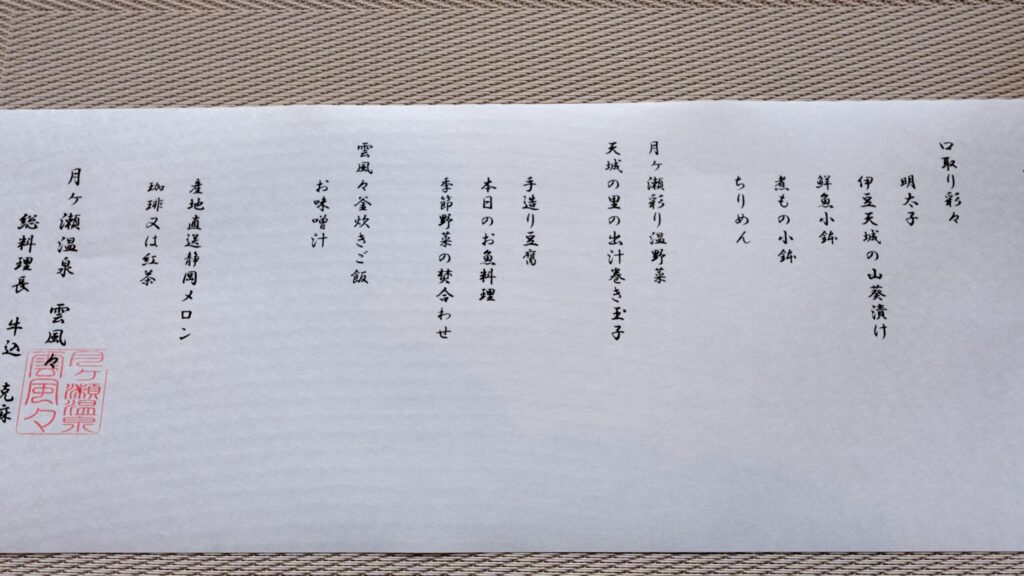 口取り彩々
明太子
伊豆天城の山葵漬け
鮮魚小鉢
煮もの小鉢
ちりめん
月ヶ瀬彩り温野菜
天城の里の出汁巻き玉子
手造り豆腐
本日のお魚料理
季節野菜の焚合わせ
雲風々釜炊きご飯
お味噌汁
産地直送静岡メロン
珈琲又は紅茶
月ヶ瀬温泉 雲風々
総料理長 牛込 克麻
月ヶ瀬温泉
雲風々